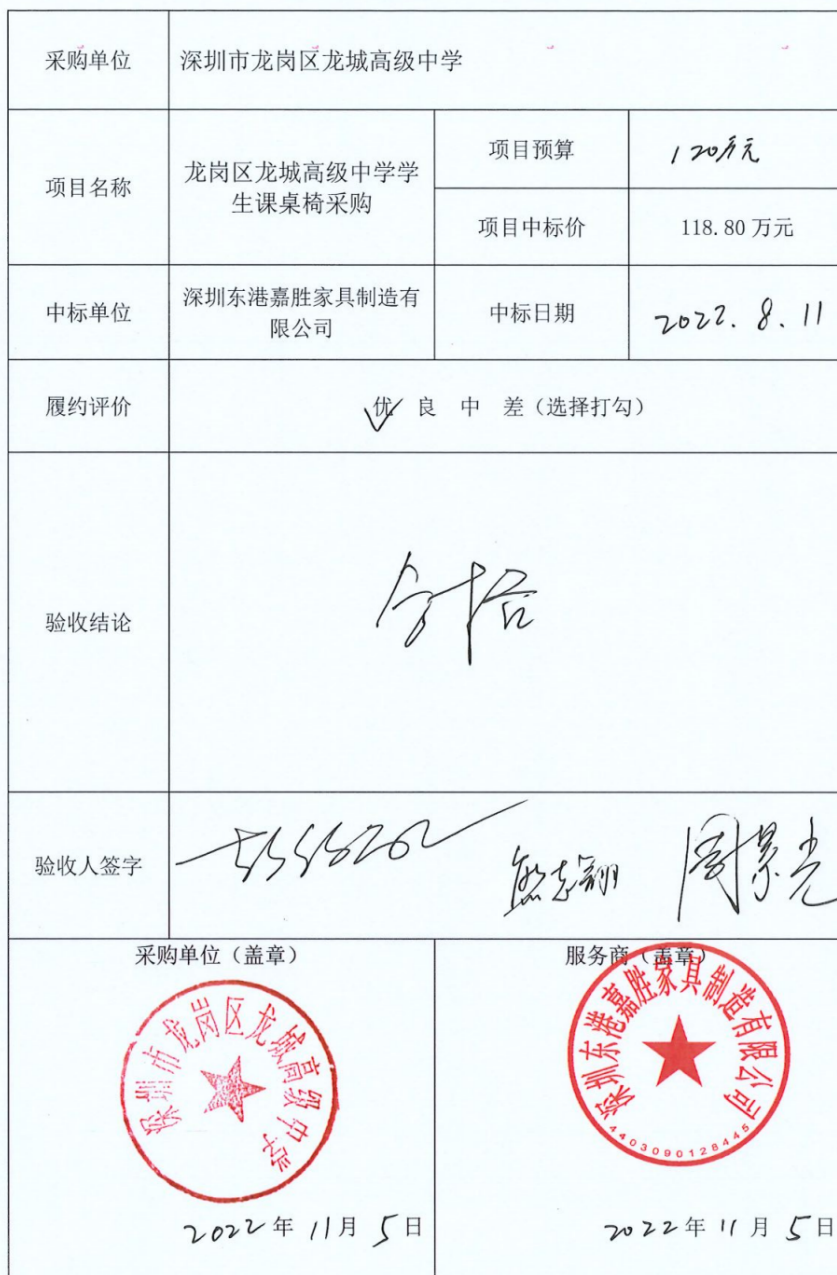 采购单位
深圳市龙岗区龙城高级中学
项目名称
龙岗区龙城高级中学学
生课桌椅采购
项目预算
120万元
项目中标价
118.80万元
中标单位
深圳东港嘉胜家具制造有
限公司
中标日期
2022. 8. 11
履约评价
优 良 中 差（选择打勾）
验收结论
合格
验收人签字
熊志翮
周景光
采购单位（盖章）
深圳市龙岗区龙城高级中学
2022年11月5日
服务商（盖章）
深圳东港嘉胜家具制造有限公司
4403090128445
2022年11月5日